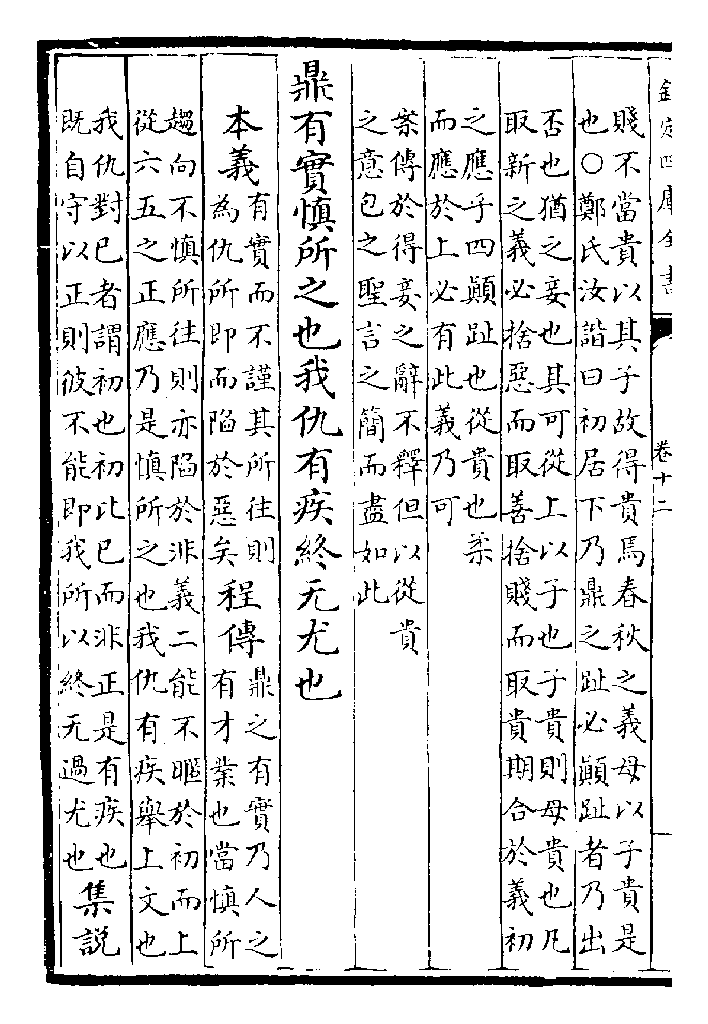 欽定四庫全書
卷十二
賤不當貴以其子故得貴焉春秋之義母以子貴是
也○鄭氏汝諧曰初居下乃鼎之趾必顚趾者乃出
否也猶之妾也其可從上以子也子貴則母貴也凡
取新之義必捨惡而取善捨賤而取貴期合於義初
之應乎四顚趾也從貴也柔
而應於上必有此義乃可
案傳於得妾之辭不釋但以從貴
之意包之聖言之簡而盡如此
鼎有實慎所之也我仇有疾終无尤也
本義
有實而不謹其所往則
為仇所即而陷於惡矣
程傳
鼎之有實乃人之
有才業也當慎所
趨向不慎所往則亦陷於非義二能不暱於初而上
從六五之正應乃是慎所之也我仇有疾舉上文也
我仇對已者謂初也初比已而非正是有疾也
既自守以正則彼不能即我所以終无過尤也
集説